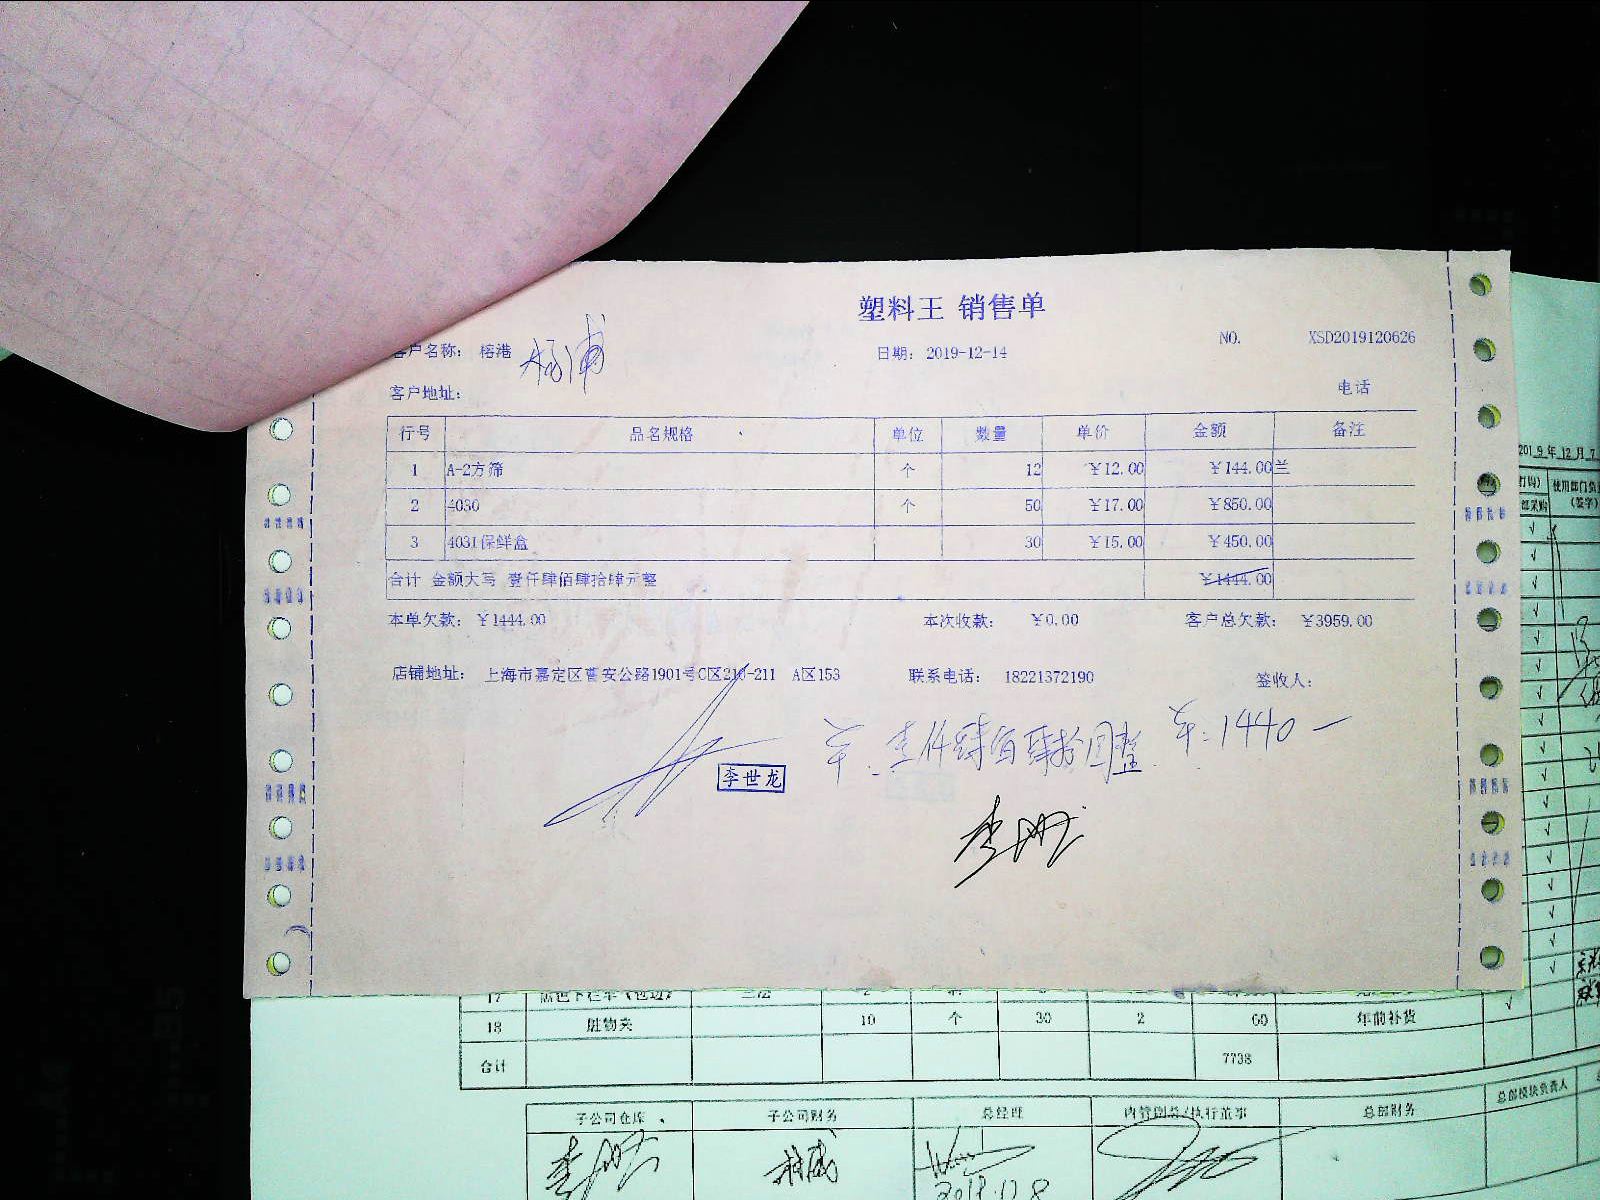 塑料王 销售单
客户名称： 榕港 杨浦 日期： 2019-12-14 NO. XSD2019120626
客户地址： 电话
行号 品名规格 单位 数量 单价 金额 备注
1 A-2方筛 个 12 ￥12.00 ￥144.00 兰
2 4030 个 50 ￥17.00 ￥850.00
3 4031保鲜盒 30 ￥15.00 ￥450.00
合计 金额大写 壹仟肆佰肆拾肆元整 ￥1444.00
本单欠款： ￥1444.00 本次收款： ￥0.00 客户总欠款： ￥3959.00
店铺地址： 上海市嘉定区曹安公路1901号C区210-211 A区153 联系电话： 18221372190 签收人：
壹仟肆佰肆拾圆整 1440
李世龙
2019年12月7
使用部门负
(签字)
部采购
18 脏物夹 10 个 30 2 60 年前补货
合计 7738
子公司仓库 子公司财务 总经理 内管副总/执行董事 总部财务 总部模块负责人